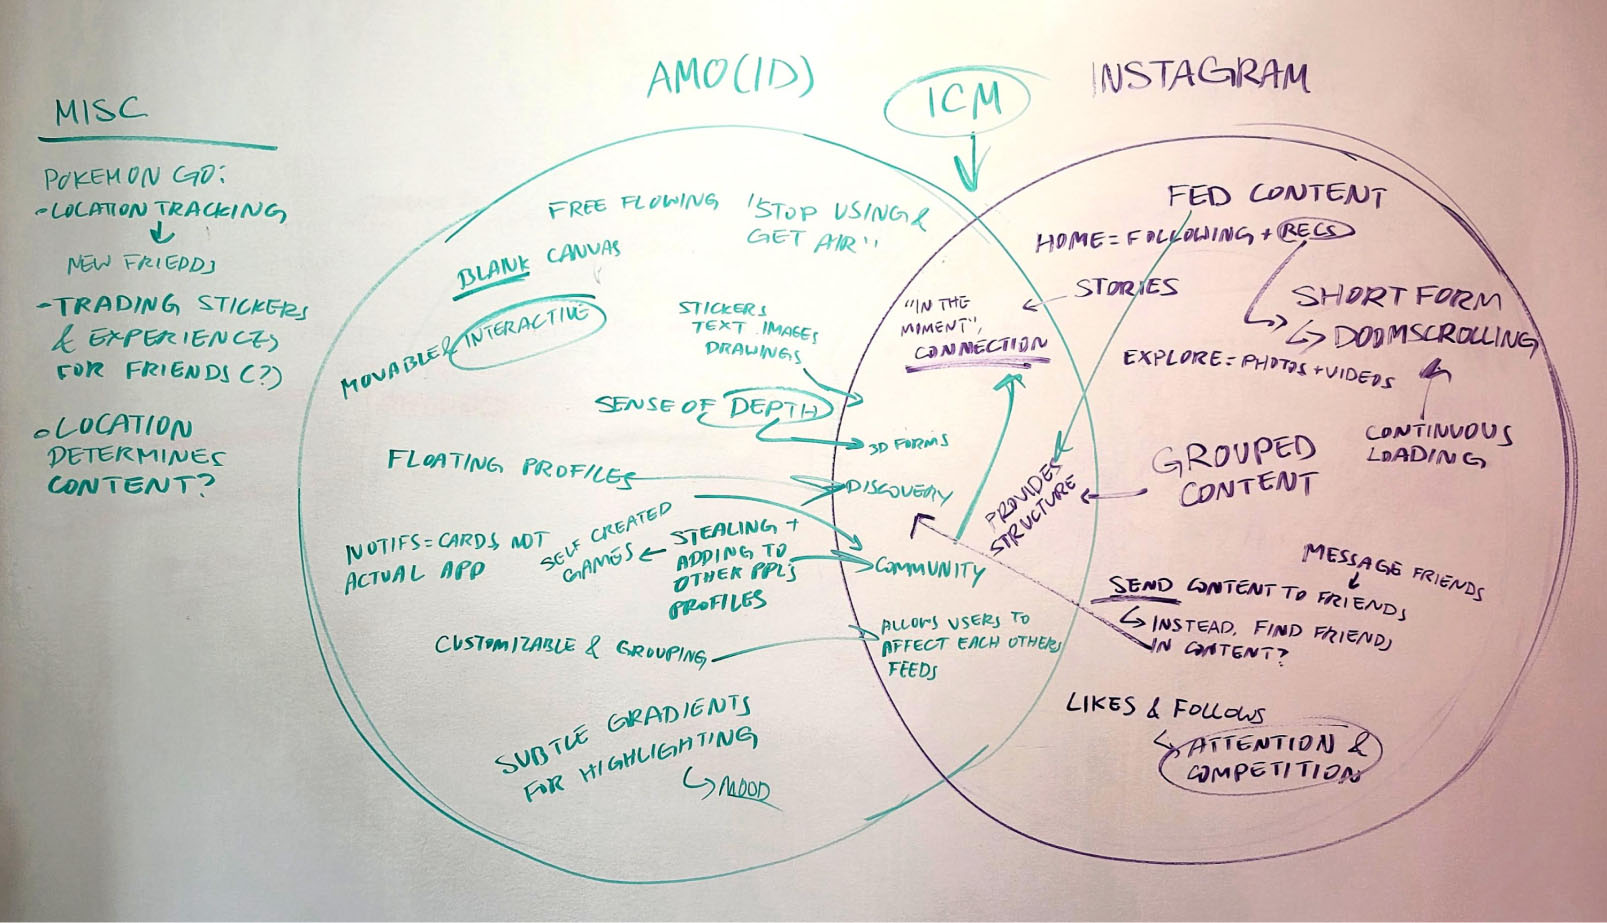 AMO(ID)
ICM
INSTAGRAM
MISC
POKEMON GO:
-LOCATION TRACKING
NEW FRIEDDS
-TRADING STICKERS
& EXPERIENCES
FOR FRIENDS (?)
LOCATION
DETERMINES
CONTENT?
FREE FLOWING
"STOP USING &
GET AIR"
BLANK CANVAS
MOVABLE & INTERACTIVE
STICKERS
TEXT IMAGES
DRAWINGS
SENSE OF DEPTH
FLOATING PROFILES
NOTIFS = CARDS, NOT
ACTUAL APP
SELF CREATED
GAMES
STEALING +
ADDING TO
OTHER PPL'S
PROFILES
CUSTOMIZABLE & GROUPING
SUBTLE GRADIENTS
FOR HIGHLIGHTING
MOOD
"IN THE
MOMENT",
CONNECTION
3D FORMS
DISCOVERY
PROVIDES
STRUCTURE
COMMUNITY
ALLOWS USERS TO
AFFECT EACH OTHERS
FEEDS
FED CONTENT
HOME = FOLLOWING + RECS
STORIES
SHORT FORM
DOOMSCROLLING
EXPLORE = PHOTOS + VIDEOS
CONTINUOUS
LOADING
GROUPED
CONTENT
MESSAGE FRIENDS
SEND CONTENT TO FRIENDS
INSTEAD, FIND FRIENDS
IN CONTENT?
LIKES & FOLLOWS
ATTENTION &
COMPETITION